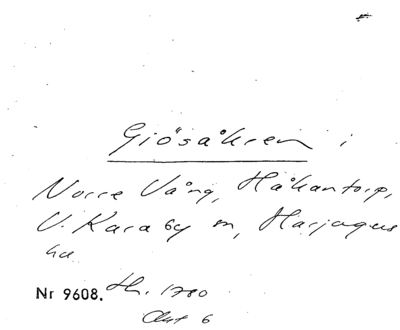 Giösåkren i
Norre Vång, Håkantorp,
V. Karaby sn, Harjagers
hd
Nr 9608. Hr. 1780
Akt 6